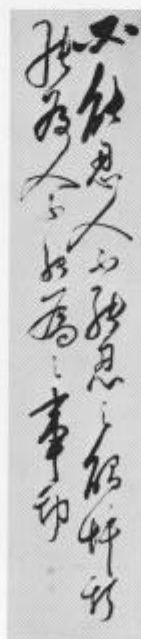 必能忍人不能忍之觸忤斯
能為人不能為之事功